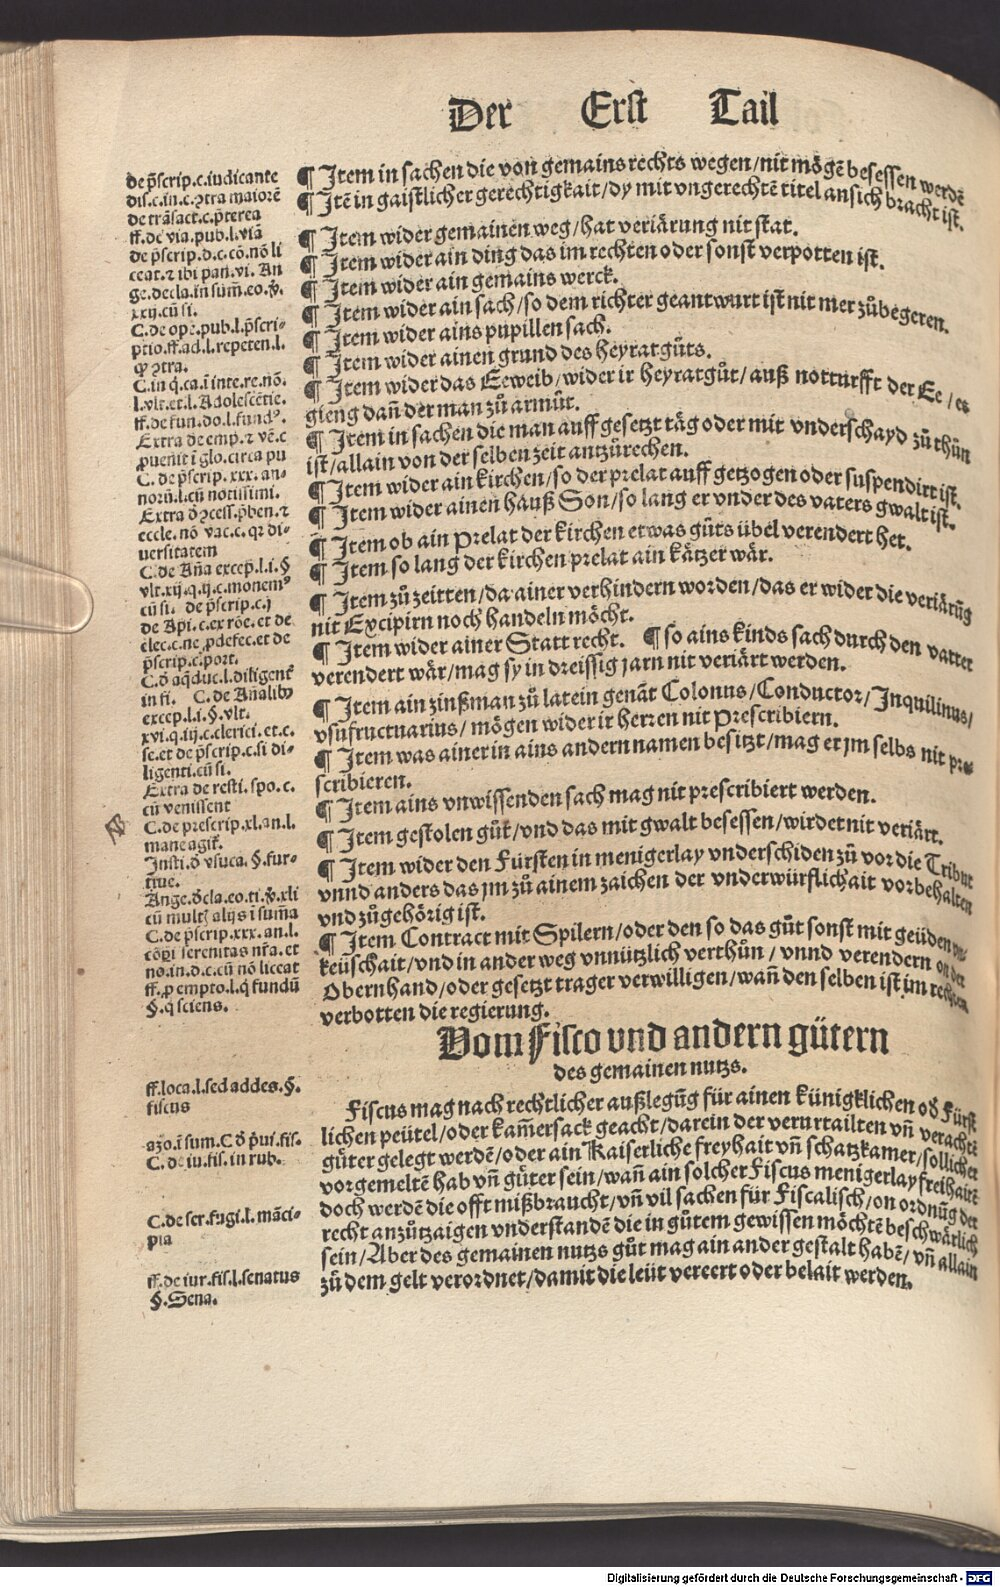 Der Erst Tail
de p̃scrip.c.iudicante
dis.c.in.c.ꝯtra maiorẽ
de trãsact.c.p̃terea
ff.de via.pub.l.viã
de p̃scrip.d.c.cõ.nõ li
ceat.⁊ ibi pan.vi. An
ge.decla.in sum̃.eo.ꝟ.
xxij.cũ si.
C.de ope.pub.l.p̃scri-
ptio.ff.ad.l.repeten.l.
ꝙ ꝯtra.
C.in q̃.ca.ĩ inte.re.nõ.
l.vlt.et.l.Adolescẽtie.
ff.de fun.do.l.fundꝰ.
Extra de emp.⁊ vẽ.c
ꝓuenit ĩ glo.circa pu
C. de p̃scrip.xxx.an-
norũ.l.cũ notissimi.
Extra ð ꝯcess.p̃ben.⁊
eccle.nõ vac.c.qꝛ di-
uersitatem
C.de Aña excep̃.l.i.§
vlt.xij.q.ij.c.monemꝰ
cũ si. de p̃scrip.c.j
de Api.c.ex rõe.et de
elec.c.ne ꝓdefec.et de
p̃scrip.c.port.
C.ð aq̃duc.l.diligent̃
in fi. C.de Añalibꝰ
excep.l.i.§.vlt.
xvi.q.iij.c.clerici.et.c.
se.et de p̃scrip.c.si di-
ligenti.cũ si.
Extra de resti.spo.c.
cũ venissent
C.de prescrip.xl.an.l.
mane agit̃.
Insti.ð vsuca.§.fur-
tiue.
Ange.ðcla.eo.ti.ꝟ.xli
cũ mult̃ alijs ĩ sum̃a
C.de p̃scrip.xxx.an.l.
cõp̃i serenitas nr̃a.et
no.in.d.c.cũ nõ liceat
ff.ꝓ empto.l.q̃ fundũ
§.q sciens.
¶ Item in sachen die von gemains rechts wegen/nit mögẽ besessen werdẽ
¶ Itẽ in gaistlicher gerechtigkait/dy mit vngerechtẽ titel an sich bracht ist.
¶ Item wider gemainen weg/hat veriärung nit stat.
¶ Item wider ain ding das im rechten oder sonst verpotten ist.
¶ Item wider ain gemains werck.
¶ Item wider ain sach/so dem richter geantwurt ist nit mer zůbegeren.
¶ Item wider ains pupillen sach.
¶ Item wider ainen grund des heyratgůts.
¶ Item wider das Eeweib/wider ir heyratgůt/auß notturfft der Ee/es
gieng dañ der man zů armůt.
¶ Item in sachen die man auff gesetzt täg oder mit vnderschayd zů thůn
ist/allain von der selben zeit antzůrechen.
¶ Item wider ain kirchen/so der prelat auff getzogen oder suspendirt ist.
¶ Item wider ainen hauß Son/so lang er vnder des vaters gwalt ist.
¶ Item ob ain Prelat der kirchen etwas gůts übel verendert het.
¶ Item so lang der kirchen prelat ain kätzer wär.
¶ Item zů zeitten/da ainer verhindern worden/das er wider die veriärũg
nit Excipirn noch handeln möcht.
¶ Item wider ainer Statt recht. ¶ so ains kinds sach durch den vatter
verendert wär/mag sy in dreissig jarn nit veriärt werden.
¶ Item ain zinßman zů latein genãt Colonus/Conductor/Inquilinus/
vsufructuarius/ mögen wider ir herren nit Prescribiern.
¶ Item was ainer in ains andern namen besitzt/mag er jm selbs nit pre-
scribieren.
¶ Item ains vnwissenden sach mag nit prescribiert werden.
¶ Item gestolen gůt/vnd das mit gwalt besessen/wirdet nit veriärt.
¶ Item wider den Fürsten in menigerlay vnderschiden zů vor die Tribut
vnnd anders das jm zů ainem zaichen der vnderwürflichait vorbehalten
vnd zůgehörig ist.
¶ Item Contract mit Spilern/oder den so das gůt sonst mit geüden vn-
keüschait/vnd in ander weg vnnützlich verthůn/ vnnd verendern on der
Obernhand/oder gesetzt trager verwilligen/wañ den selben ist im rechten
verbotten die regierung.
Vom Fisco vnd andern gütern
des gemainen nutzs.
ff.loca.l.sed addes.§.
fiscus
azo.ĩ sum.C ð p̃ui.fis.
C.de iu.fis.in rub.
C.de ser.fugi.l.mãci-
pia
ff.de iur.fis.l.senatus
§.Sena.
Fiscus mag nach rechtlicher außlegũg für ainen künigklichen oð Fürst
lichen peütel/oder kam̃ersack geacht/darein der verurtailten vñ verachtẽ
güter gelegt werdẽ/oder ain Kaiserliche freyhait vñ schatzkamer/sollicher
vorgemeltẽ hab vñ güter sein/wañ ain solcher Fiscus menigerlay freihaitẽ
doch werdẽ die offt mißbraucht/vñ vil sachen für Fiscalisch/on ordnũg der
recht anzůtzaigen vnderstandẽ die in gůtem gewissen möchtẽ beschwärlich
sein/Aber des gemainen nutzs gůt mag ain ander gestalt habẽ/vñ allain
zů dem gelt verordnet/damit die leüt vereert oder belait werden.
Digitalisierung gefördert durch die Deutsche Forschungsgemeinschaft - DFG